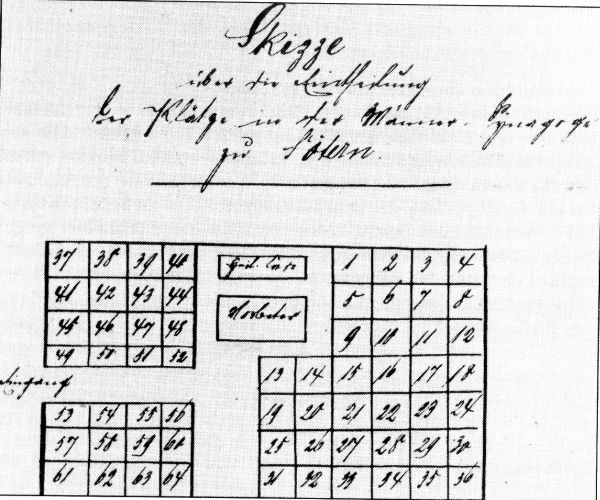 Skizze
über die Eintheilung
der Plätze in der Männer-Synagoge
zu Sötern
37 38 39 40
41 42 43 44
45 46 47 48
49 50 51 52
Eingang
53 54 55 56
57 58 59 60
61 62 63 64
Vorbeter
1 2 3 4
5 6 7 8
9 10 11 12
13 14 15 16 17 18
19 20 21 22 23 24
25 26 27 28 29 30
31 32 33 34 35 36